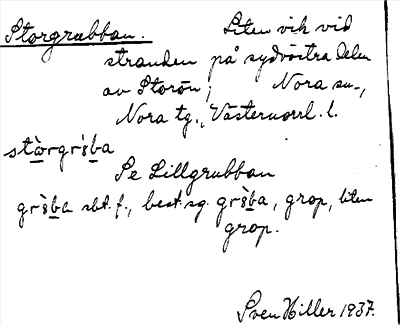 Storgrubban. Liten vik vid
stranden på sydvästra delen
av Storön, Nora sn.,
Nora tg., Västernorrl. l.
stòrgrìba
Se Lillgrubban
grìba sbt. f., best. sg. grìba, grop, liten
grop.
Sven Hiller 1937.